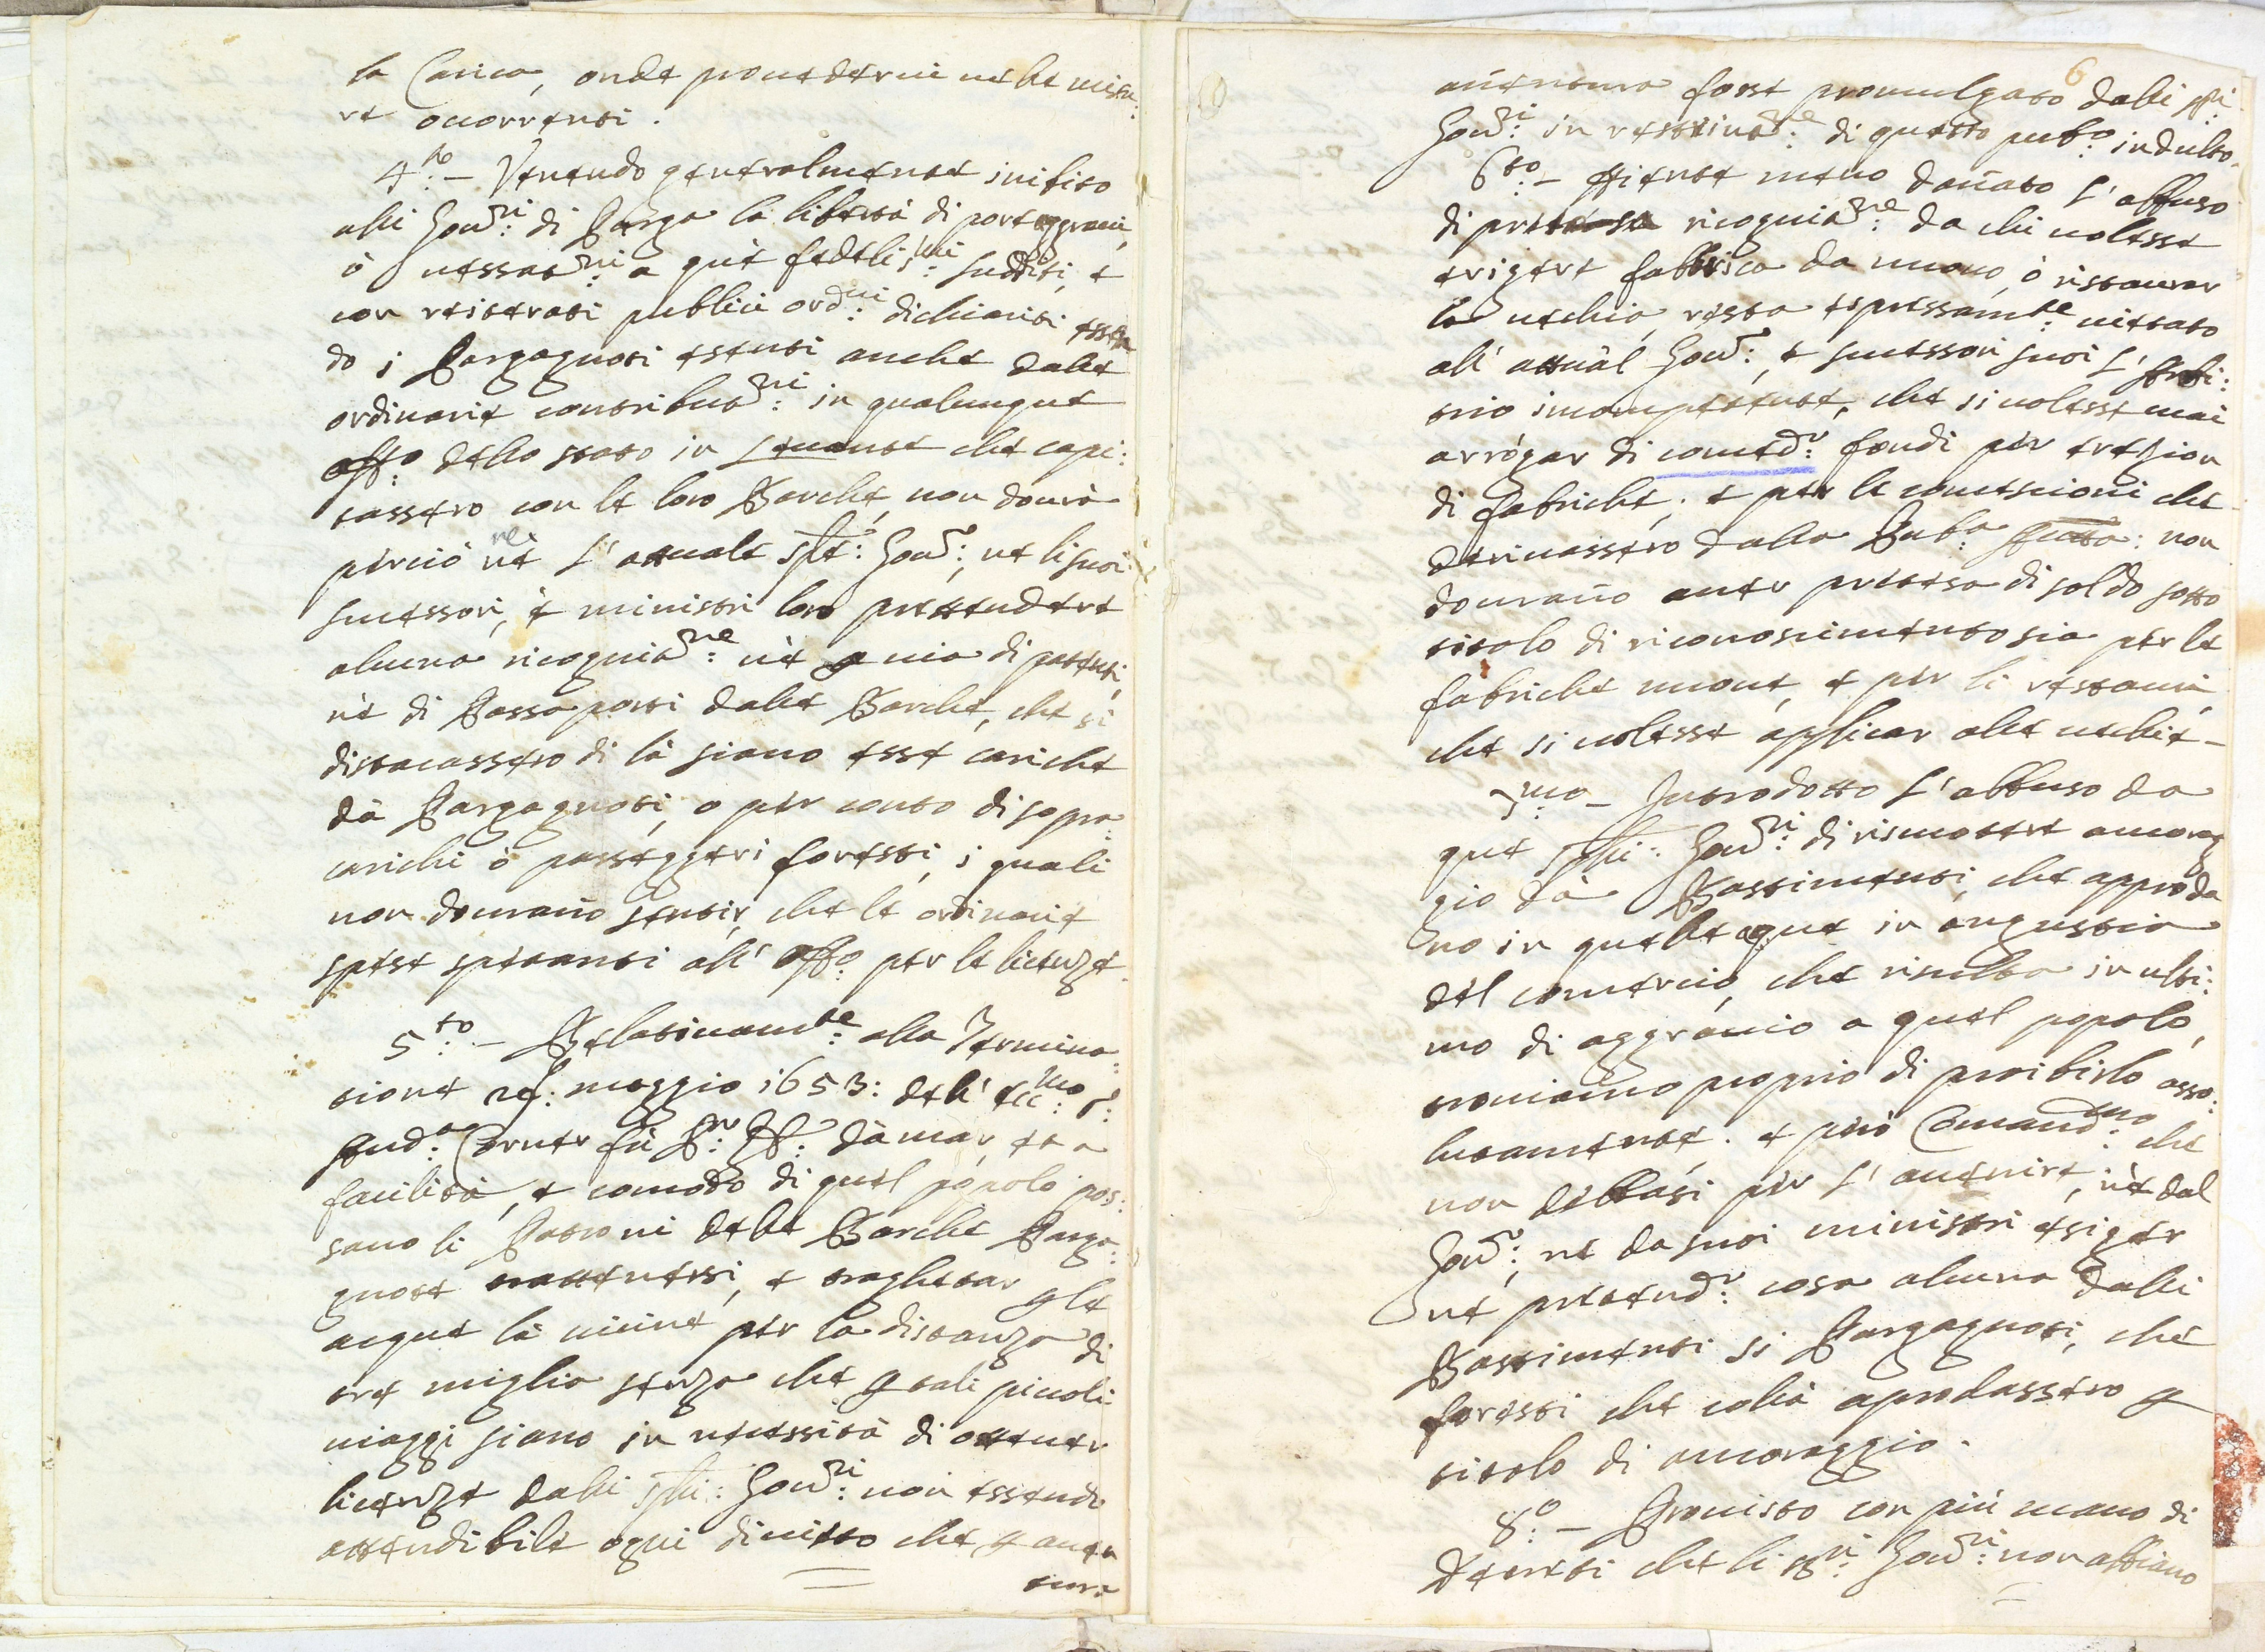 la Carica, onde provedervi nelle misu:
re occorrenti.
4.to – Venendo generalmente inibito
alli Gov.ri di Parga la libertà di porte aggravi,
ò vessat.ni a què fedeliss.mi sudditi, e
con reiterati publici ord.ni dichiariti essen
do i Pargagnoti esenti anche dalle
ordinarie contribut.ni in qualunque
off.o dello stato in Levante che capi:
tassero con le loro Barche, non dovrà
perciò nè l'attuale Sp.le: Gov.r; ne li suoi
successori, è ministri loro prettendere
alcuna ricognit.ne: nè a via di patenti,
nè di Passaporti dalle Barche, che si
distacassero di là siano esse cariche
dà Pargagnoti, o per conto di sopra
carichi ò passeggieri foresti, i quali
non dovranno sentir, che le ordinarie
spese spetanti all' off.o per le licenze.
5.to – Relativam.te alla Termina:
tione maggio 1653: dell' ecc.mo
And.a Corner fù Pr. Gl. dà mar, et a
facilità, e comodo di quel popolo pos:
sano li Patroni delle Barche Parga:
gnote trattenersi, e traghettar p le
acque là vicine per la distanza di
tre miglia senza che p tali picoli
viaggi siano in necessità di ottener
licenze dalli Sp.li: Gov.ri: non essendo
attendibile ogni divietto che p aven
tura
6
aventura fosse promulgato dalli p.ti
Gov.ri: in restrinat.ne: di questo pub.o indulto.
6.to – Niente meno dañato l'abbuso
di pretesa ricognit.ne: da chi volesse
erigere fabbrica da nuovo, ò ristaurar
la vechia, resta espressam.te vietato
all' attual Gov.r; e sucessori suoi l'arbi:
trio incompetente, che si volesse mai
arrògar di conced.r: fondi per erezion
di fabriche; e per le concessioni che
derivassero dalla Pub.a non
dovrano aver pretesa di soldo sotto
titolo di riconoscimento sia per le
fabriche nuove, e per li restauri,
che si volesse applicar alle vechie –
7.mo – Introdotto l'abbuso da
que Sp.li: Gov.ri: di riscuotere ancorag
gio dà Bastimenti, che approda
no in quelle aque in angustia
del comercio, che risulta in ulti:
mo di aggravio a quel popolo,
troviamo proprio di proibirlo asso:
lutamente; e però Comand.mo: che
non debbasi per l'avenire, nè dal
Gov.r; ne da suoi ministri esiger
ne pretend.r: cosa alcuna dalli
Bastimenti si Pargagnoti, che
foresti che colà aprodassero p
titolo di ancoraggio.
8.o – Provisto con più mano di
Decreti che li sig.ri: Gov.ri: non abbiano